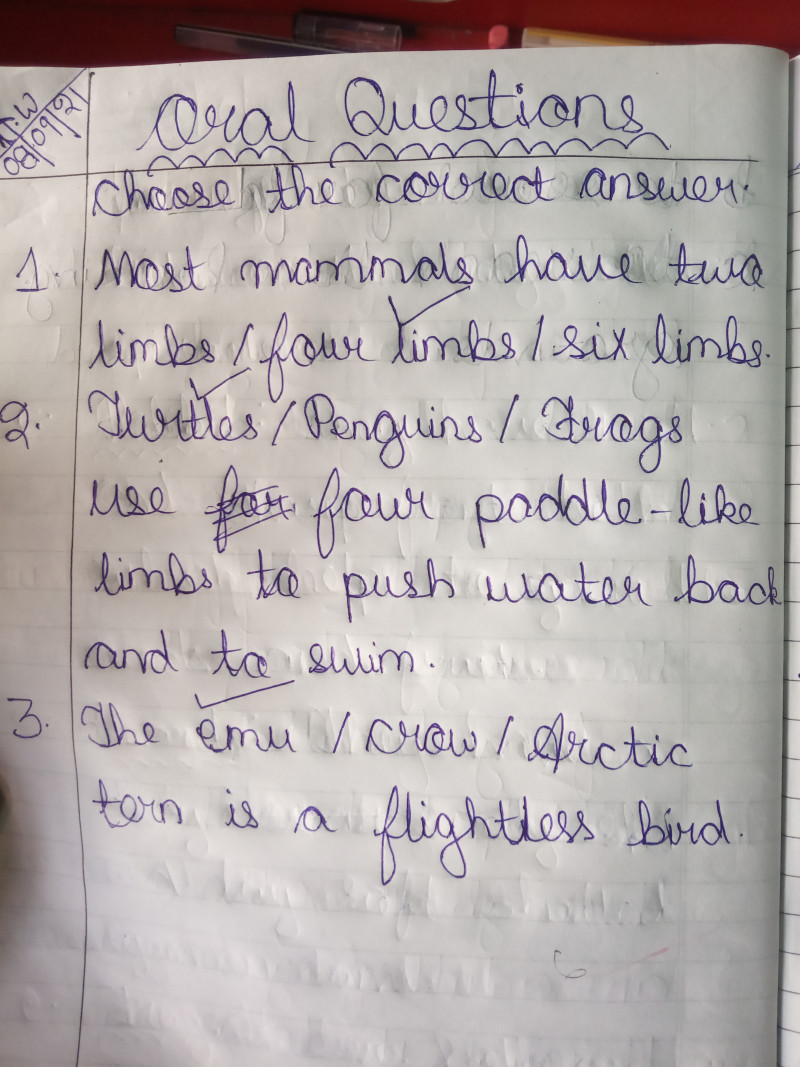 H.W
08/09/21
Oral Questions
Choose the correct answer.
1. Most mammals have two
limbs / four limbs / six limbs.
2. Turtles / Penguins / Frogs
use for four paddle-like
limbs to push water back
and to swim.
3. The emu / crow / Arctic
tern is a flightless bird.